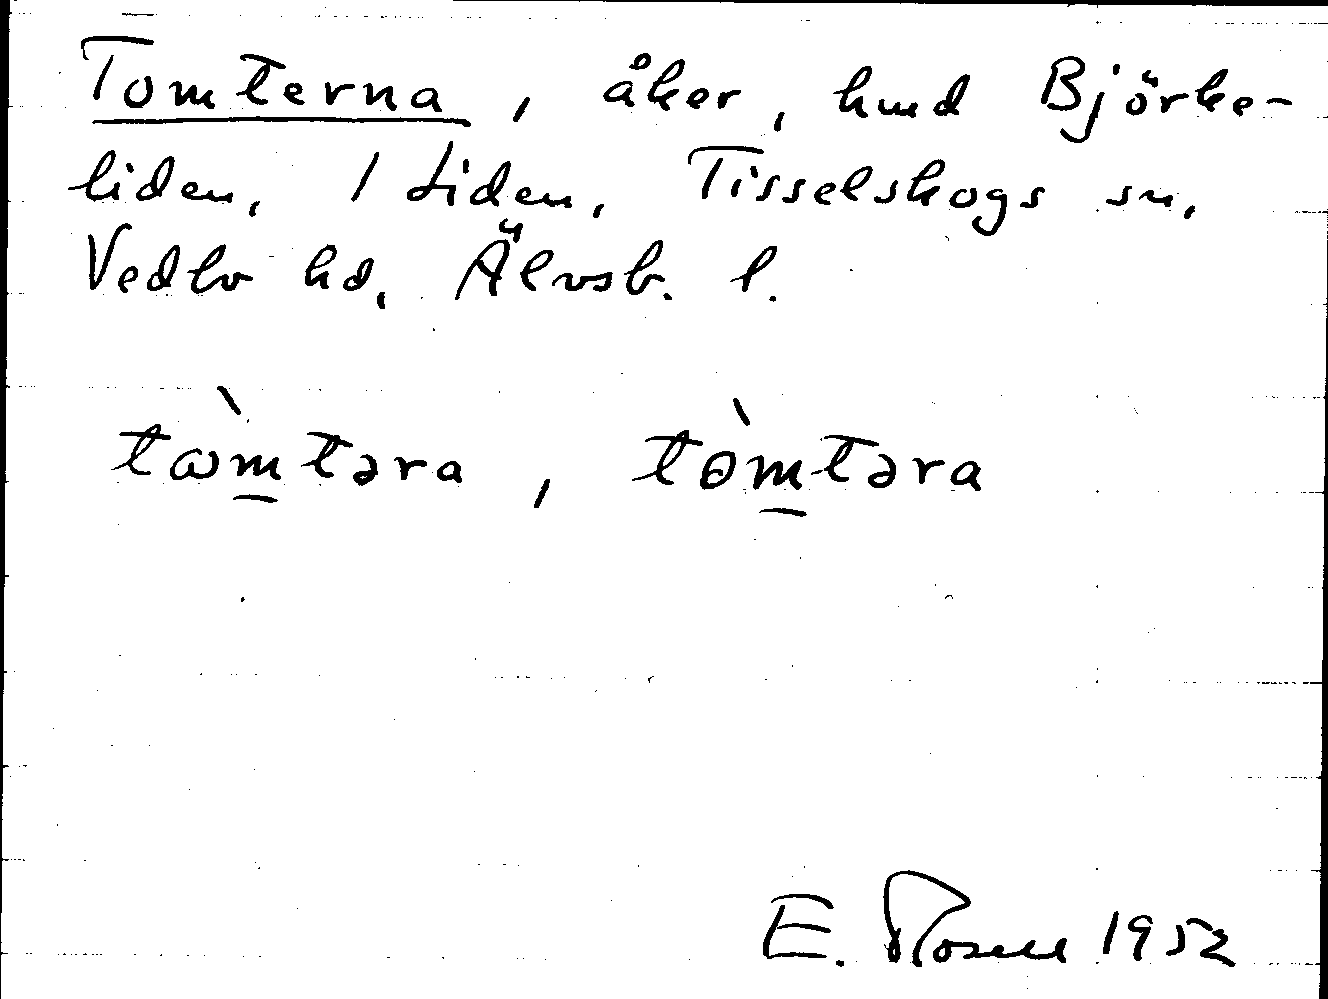 Tomterna, åker, hmd Björke-
liden, 1 Liden, Tisselskogs sn,
Vedbo hd, Älvsb. l.
tɷ̀m̲təra, tòm̲təra
E. Rosell 1952